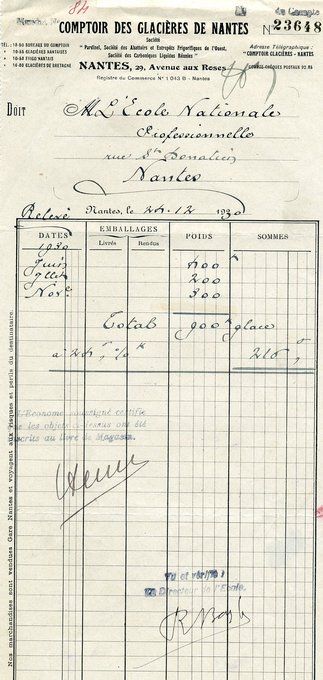 84
de Compte
COMPTOIR DES GLACIÈRES DE NANTES
Nº 23648
Société
"Pardieul, Société des Abattoirs et Entrepôts Frigorifiques de l'Ouest,
Société des Carboniques Liquides Réunies"
NANTES, 29, Avenue aux Roses
Registre du Commerce Nº 1043 B - Nantes
TÉL. 10-60 BUREAUX DU COMPTOIR
10-60 GLACIÈRES NANTAISES
10-60 FRIGO NANTAIS
14-80 GLACIÈRES DE BRETAGNE
Adresse Télégraphique :
COMPTOIR GLACIÈRES - NANTES
COMPTE CHÈQUES POSTAUX 92.96
DOIT M L'École Nationale
Professionnelle
rue St Donatien
Nantes
Relevé Nantes, le 24.12 1930
DATES EMBALLAGES POIDS SOMMES
Livrés Rendus
1930
Juin 400 k
Jllet 200
Nov. 300
Total 900 k glace
a 24, % k 216,
L'Econome soussigné certifie
que les objets ci-dessus ont été
inscrits au livre de Magasin.
Vu et vérifié :
Le Directeur de l'Ecole,
Nos marchandises sont vendues Gare Nantes et voyagent aux risques et périls du destinataire.